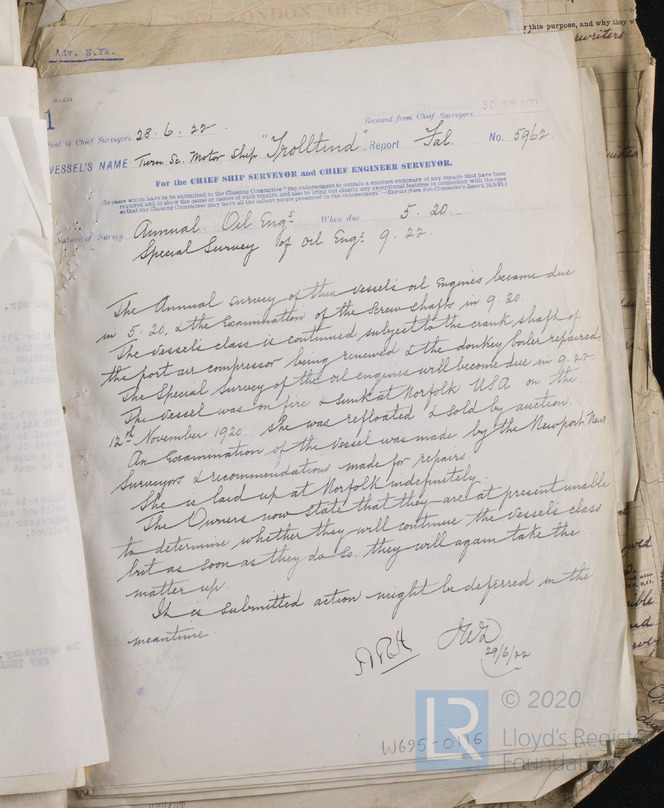 r this purpose, and why they w
Adv. N.Yk.
1
Sent to Chief Surveyors 28.6.22. Received from Chief Surveyors
VESSEL'S NAME Twin Sc. Motor Ship "Trolltind". Report Fal. No. 5962
For the CHIEF SHIP SURVEYOR and CHIEF ENGINEER SURVEYOR.
(In cases which have to be submitted to the Classing Committee "the endorsement to contain a succinct summary of any repairs that have been
required and to show the cause or causes of such repairs, and also to bring out clearly any exceptional features in connection with the case
so that the Classing Committee may have all the salient points presented in the endorsement."
Nature of Survey Annual Oil Engs. When due 5.20.
Special Survey of Oil Engs. 9.22.
The Annual survey of this vessel's oil engines became due
in 5.20, & the Examination of the Screw shafts in 9.20.
The vessel's class is continued subject to the crank shaft of
the port air compressor being renewed & the donkey boiler repaired.
The Special Survey of the oil engines will become due in 9.22.
The vessel was on fire & sunk at Norfolk USA on the
12th November 1920. She was refloated & sold by auction.
An Examination of the vessel was made by the Newport News
Surveyors & recommendations made for repairs.
She is laid up at Norfolk indefinitely.
The Owners now state that they are at present unable
to determine whether they will continue the vessel's class
but as soon as they do so, they will again take the
matter up.
It is submitted action might be deferred in the
meantime.
29/6/22
W695-0116
LR
© 2020
Lloyd's Register
Foundation